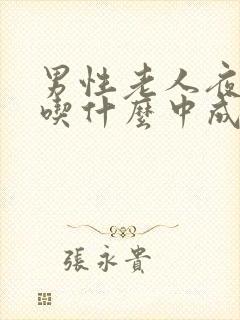 男性老人夜
喫什麼中成
張永貴